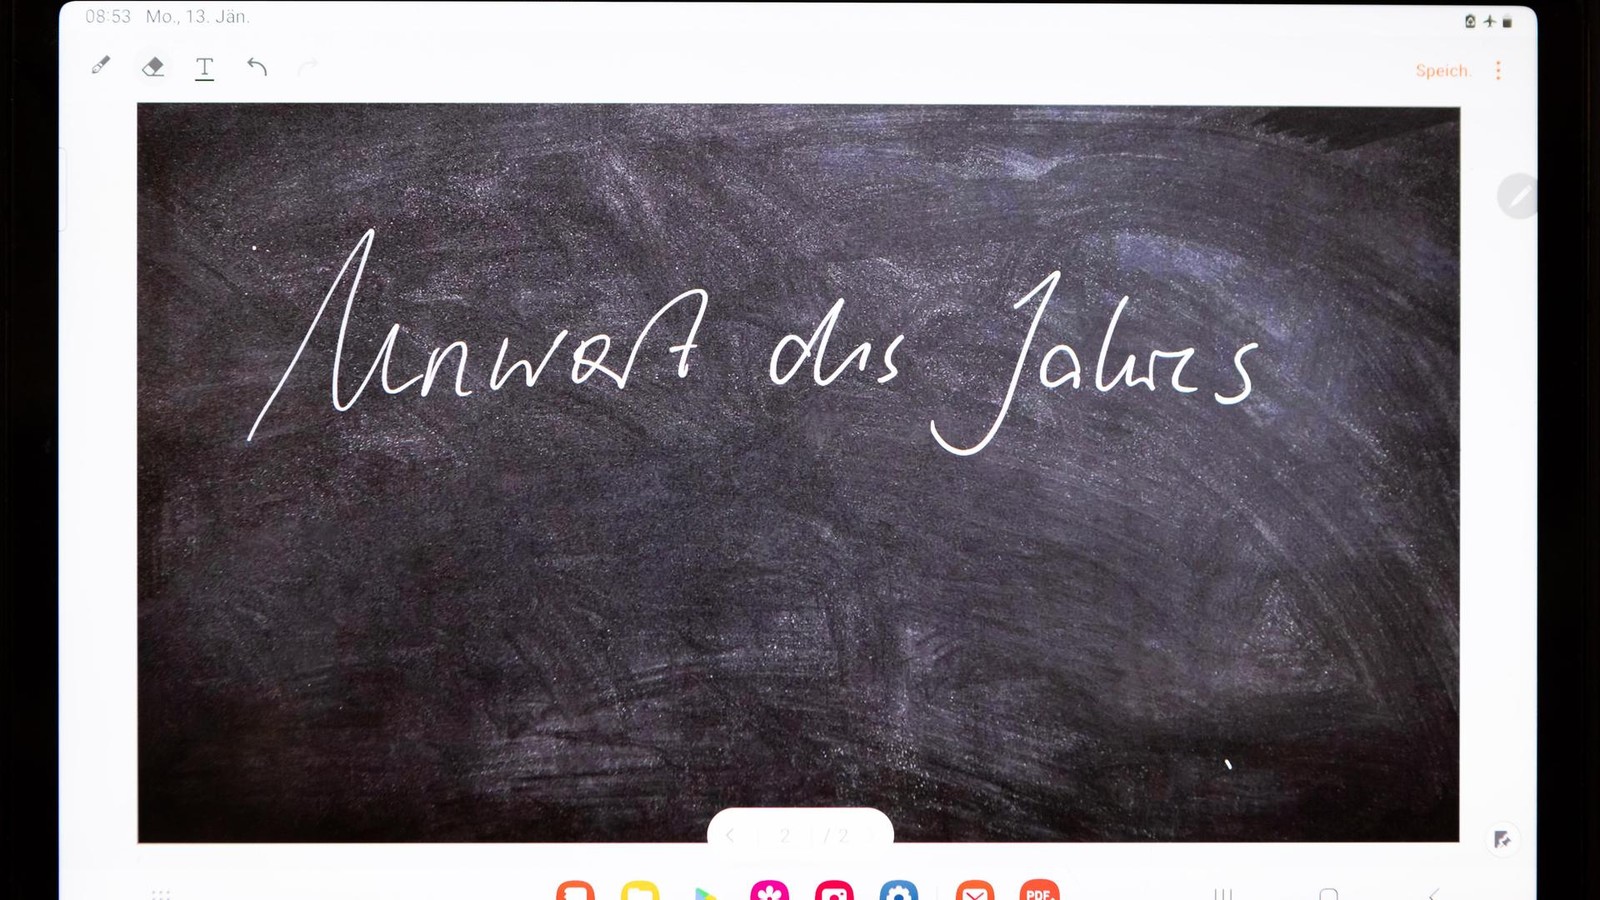 08:53 Mo., 13. Jän.
T
Speich.
Unwort des Jahres
2 / 2
PDF